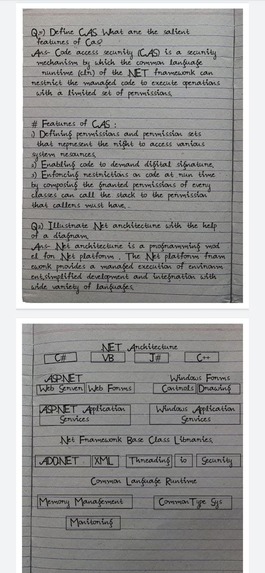 Q1) Define CAS What are the salient
features of Cas?
Ans- Code access security (CAS) is a security
mechanism by which the common language
runtime (clr) of the .NET framework can
restrict the managed code to execute operations
with a limited set of permissions.
# Features of CAS :
1) Defining permissions and permission sets
that represent the right to access various
system resources.
2) Enabling code to demand digital signature.
3) Enforcing restrictions on code at run time
by composing the granted permissions of every
classes can call the stack to the permission
that callers must have.
Q2) Illustrate Net architecture with the help
of a diagram
Ans- Net architecture is a programming mod
el for Net platform. The Net platform fram
ework provides a managed execution of environm
ent, simplified development and integration with
wide variety of languages.
.NET Architecture
C# VB J# C++
ASP.NET Windows Forms
Web Server Web Forms Controls Drawing
ASP.NET Application Windows Application
Services Services
.Net Framework Base Class Libraries
ADO.NET XML Threading io Security
Common Language Runtime
Memory Management Common Type Sys
Monitoring